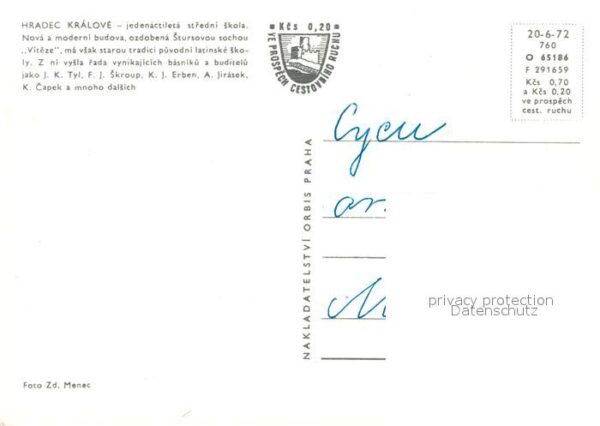 HRADEC KRÁLOVÉ – jedenáctiletá střední škola.
Nová a moderní budova, ozdobená Štursovou sochou
„Vítěze", má však starou tradici původní latinské ško-
ly. Z ní vyšla řada vynikajících básníků a buditelů
jako J. K. Tyl, F. J. Škroup, K. J. Erben, A. Jirásek,
K. Čapek a mnoho dalších
Kčs 0,20
VE PROSPĚCH CESTOVNÍHO RUCHU
20-6-72
760
O 65186
F 291659
Kčs 0,70
a Kčs 0,20
ve prospěch
cest. ruchu
NAKLADATELSTVÍ ORBIS PRAHA
privacy protection
Datenschutz
Foto Zd. Menec